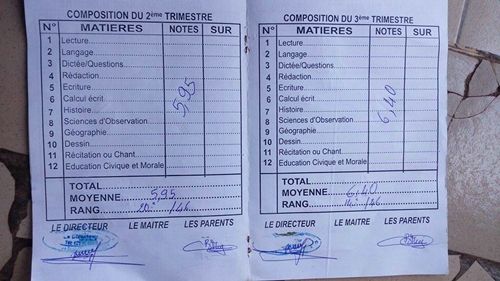 COMPOSITION DU 2ème TRIMESTRE
N° MATIERES NOTES SUR
1 Lecture
2 Langage
3 Dictée/Questions
4 Rédaction
5 Ecriture
6 Calcul écrit
7 Histoire
8 Sciences d'Observation
9 Géographie
10 Dessin
11 Récitation ou Chant
12 Education Civique et Morale
5,95
TOTAL
MOYENNE 5,95
RANG /46
LE DIRECTEUR LE MAITRE LES PARENTS
COMPOSITION DU 3ème TRIMESTRE
N° MATIERES NOTES SUR
1 Lecture
2 Langage
3 Dictée/Questions
4 Rédaction
5 Ecriture
6 Calcul écrit
7 Histoire
8 Sciences d'Observation
9 Géographie
10 Dessin
11 Récitation ou Chant
12 Education Civique et Morale
6,40
TOTAL
MOYENNE 6,40
RANG /46
LE DIRECTEUR LE MAITRE LES PARENTS